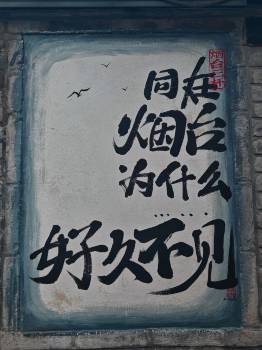 同在
烟台
为什么
……
好久不见